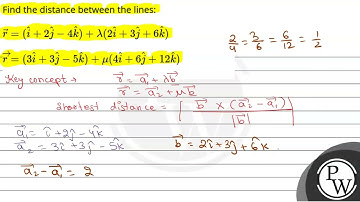 Find the distance between the lines:
r⃗ = (î + 2ĵ − 4k̂) + λ(2î + 3ĵ + 6k̂)
r⃗ = (3î + 3ĵ − 5k̂) + μ(4î + 6ĵ + 12k̂)
2/4 = 3/6 = 6/12 = 1/2
Key concept → r⃗ = a⃗₁ + λb⃗
r⃗ = a⃗₂ + μb⃗
Shortest distance = | b⃗ × (a⃗₂ − a⃗₁) / |b⃗| |
a⃗₁ = î + 2ĵ − 4k̂
a⃗₂ = 3î + 3ĵ − 5k̂
b⃗ = 2î + 3ĵ + 6k̂.
a⃗₂ − a⃗₁ = 2
PW